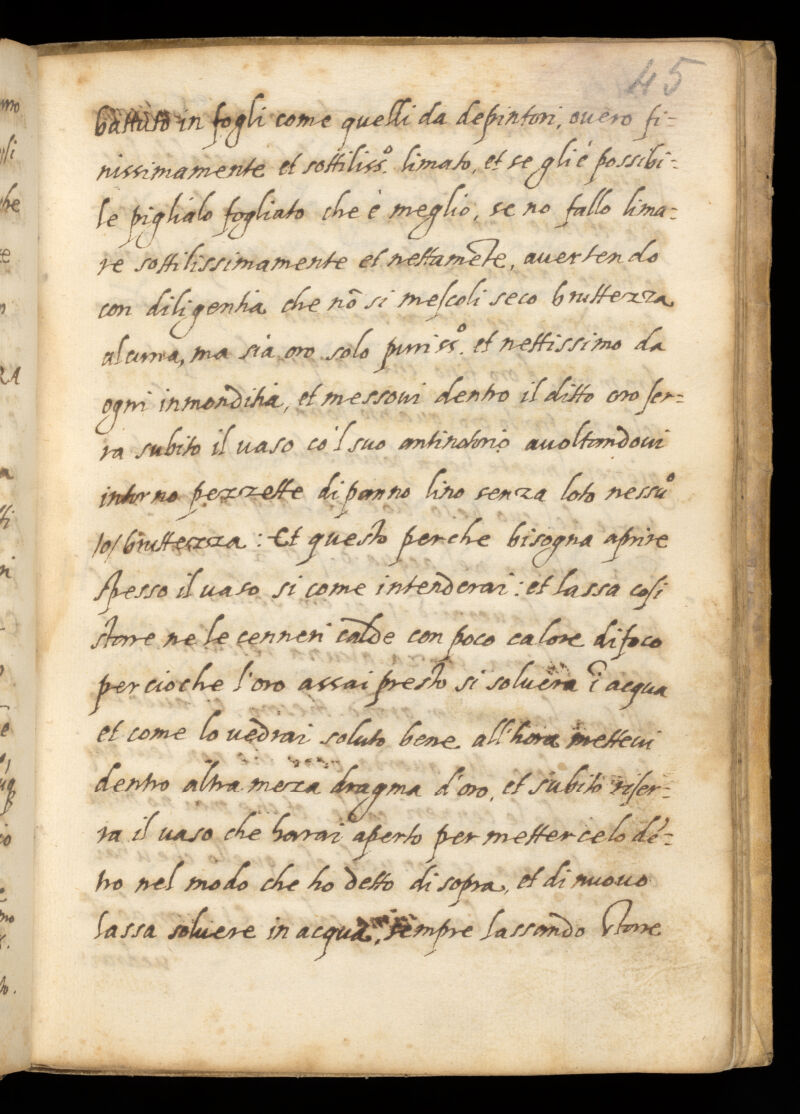 45
battuto in fogli come quelli da depintori, overo fi=
nissimamente et sottiliss.º limato, et se gli è possibi=
le piglialo fogliato che è meglio, se no fallo lima=
re sottilissimamente et nettamēte, avertendo
con diligentia che nō si mescoli seco bruttezza
alcuna, ma sia oro solo puriss.º et nettissimo da
ogni inmonditia, et messovi dentro il ditto oro ser=
ra subito il vaso cō'l suo antinotorio avoltandovi
intorno pezzette di panno lino senza loto nessū
/o/ bruttezza: Et questo perche bisogna aprire
spesso il vaso si come intenderai: et lassa così
stare ne le cenneri calde con poco calore di foco
percioche l'oro assai presto si solverà ī acqua
et come lo vedrai soluto bene all'hora mettevi
dentro altra meza dragma d'oro, et subito riser=
ra il vaso che harai aperto per mettercelo dē=
tro nel modo che ho detto di sopra, et di nuovo
lassa solvere in acqua, sempre lassando stare